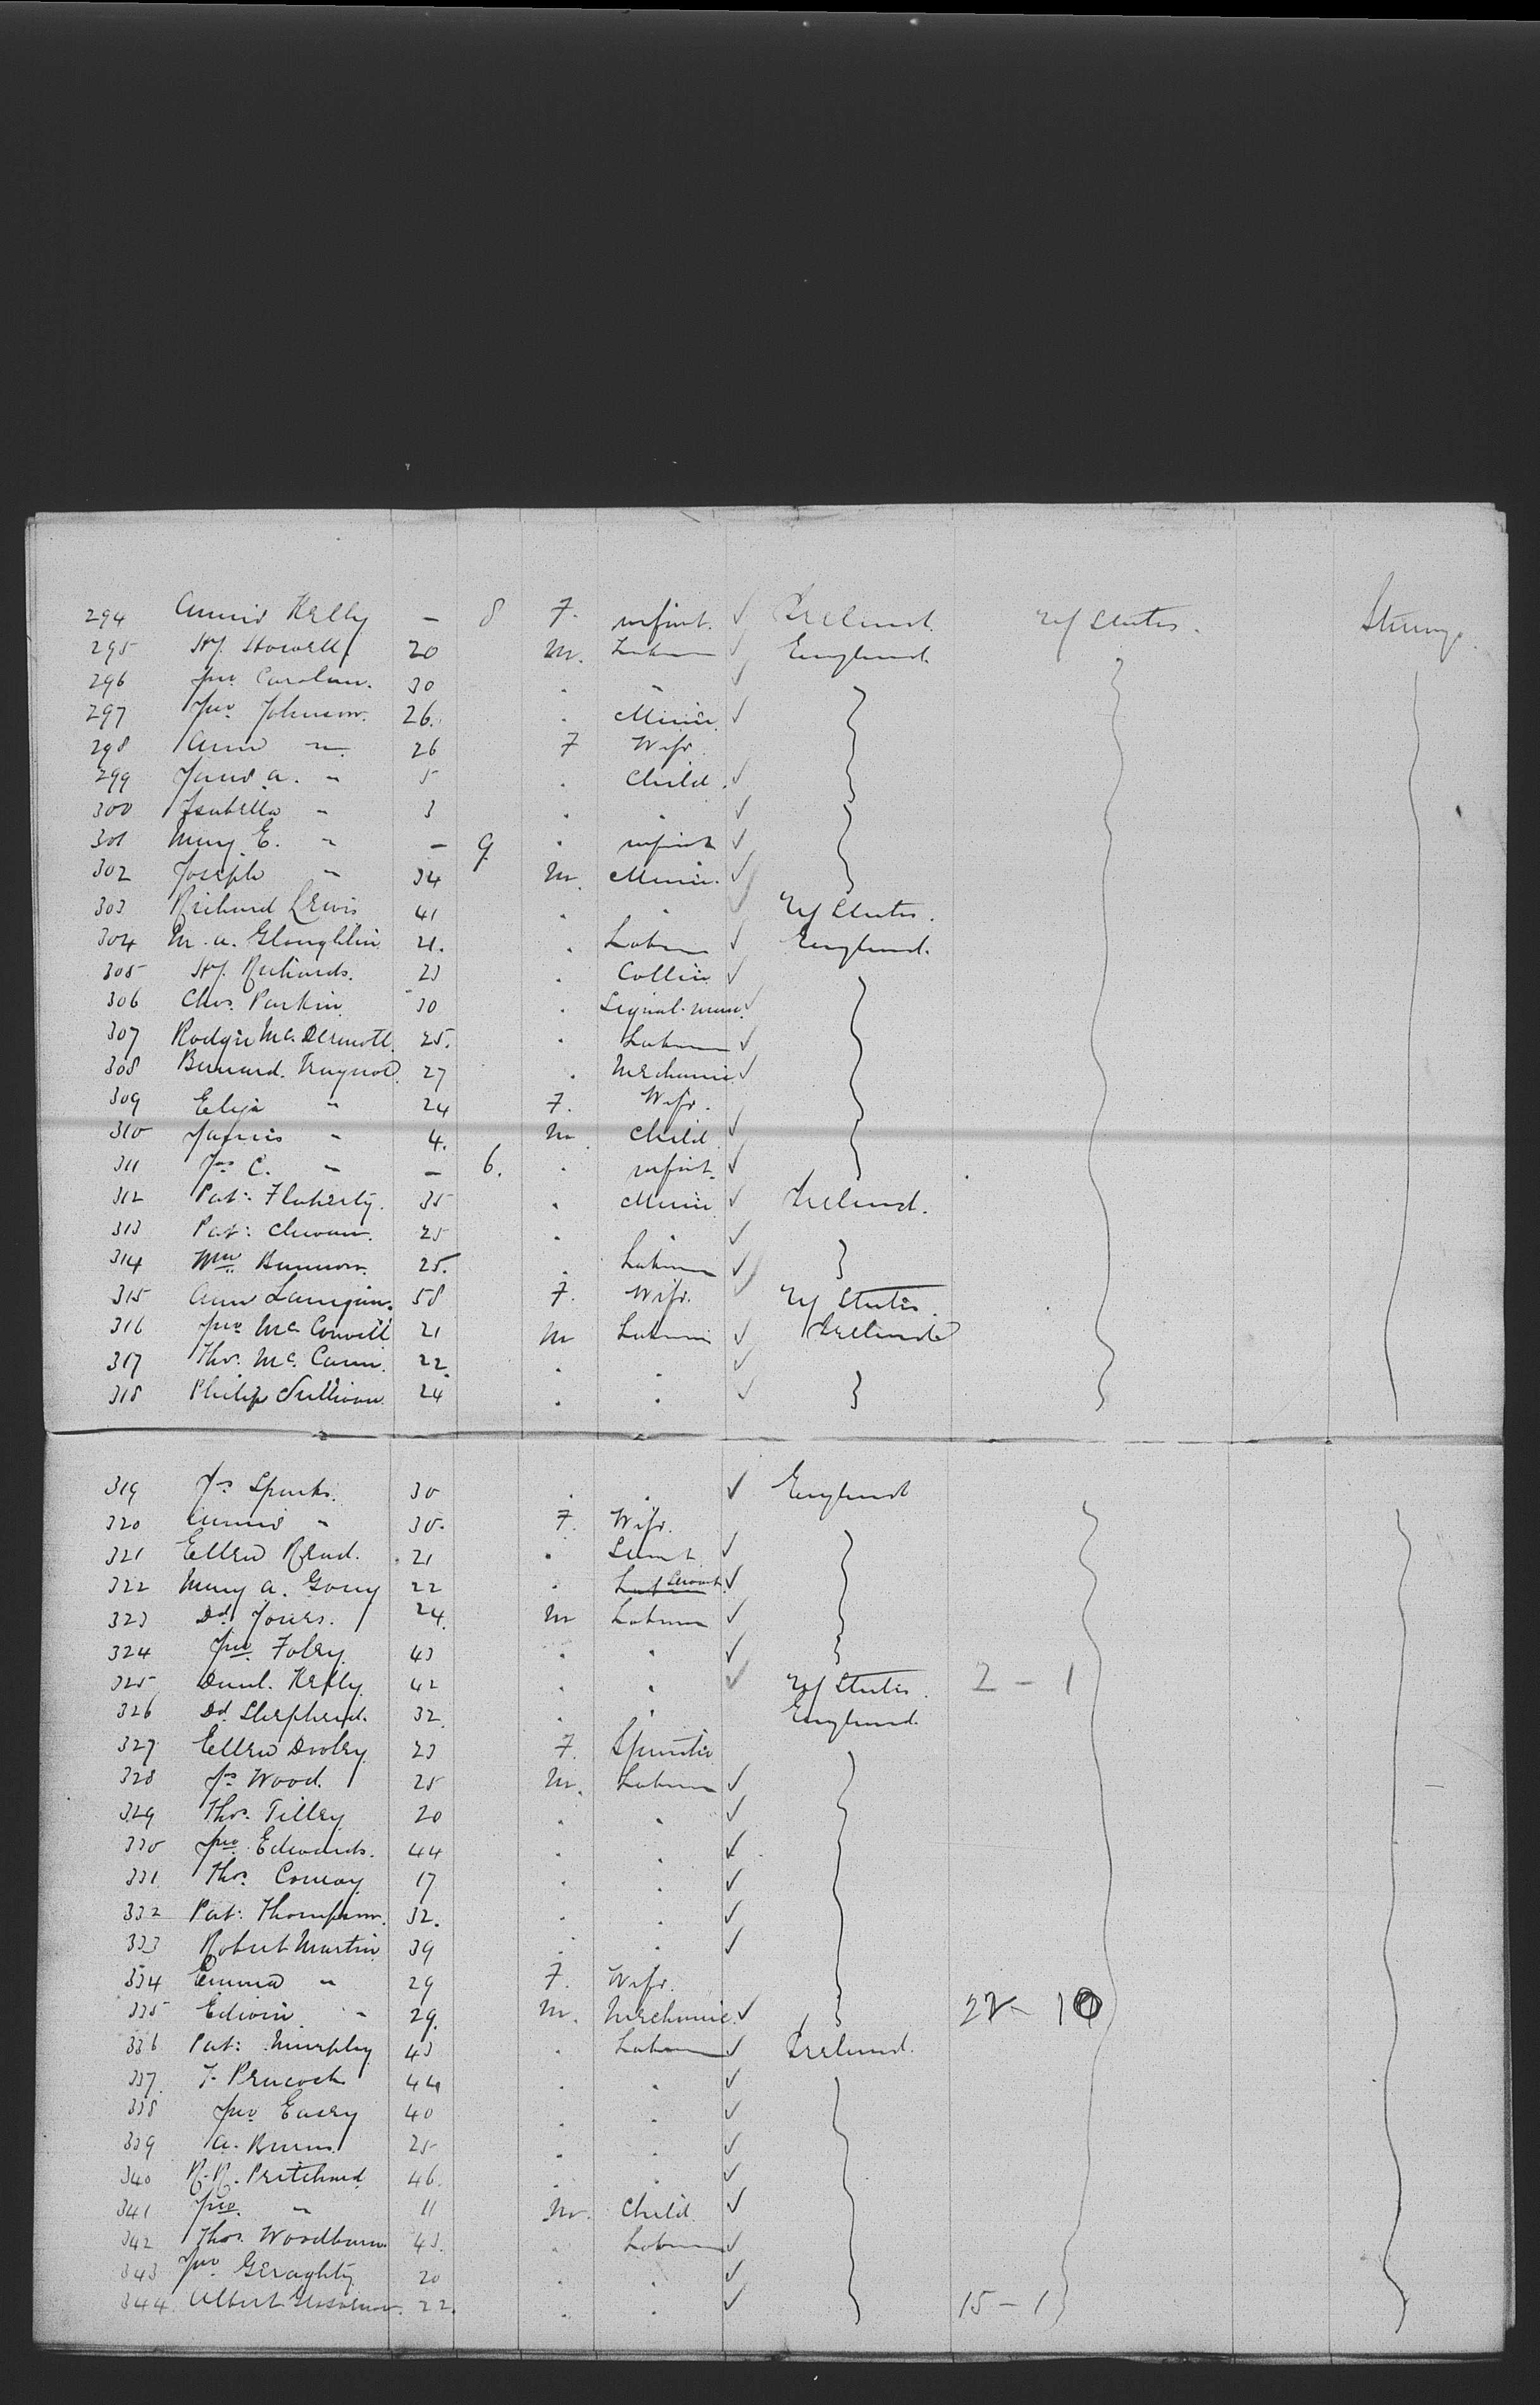 294 Annie Kelly – 8 F. infant. ✓ Ireland. U/ States. Steerage.
295 Hy. Howell. 20 M. Labourer ✓ England.
296 Jno. Carolan. 30 . . ✓
297 Jno. Johnson. 26. . Miner ✓
298 Ann " 26 F Wife.
299 Jane A. " 5 . Child. ✓
300 Isabella " 3 . . ✓
301 Mary E. " – 9 . infant ✓
302 Joseph " 34 M. Miner. ✓
303 Richard Lewis 41 . . ✓ U/ States.
304 M. A. 21. . Labourer ✓ England.
305 Hy. Richards. 23 . Collier ✓
306 Chas. Parkin. 30 . Signal-man. ✓
307 Rodger McDermott. 25. . Labourer ✓
308 Bernard Traynor. 27 . Mechanic ✓
309 Eliza " 24 F. Wife.
310 James " 4. M. Child ✓
311 Jas C. " – 6. . infant. ✓
312 Pat: Flaherty. 35 . Miner ✓ Ireland.
313 Pat: 25 . . ✓
314 Wm. 25. . Labourer ✓
315 Ann Lanigan. 58 F. Wife. ✓ U/ States.
316 Jno 21 M Labourer ✓ Ireland
317 Thos. McCann. 22. . ✓
318 Philip Sullivan. 24 . . ✓
319 Jas Sparks. 30 . . ✓ England
320 Annie " 30. F. Wife.
321 Ellen Read. 21 . Servt. ✓
322 Mary A. 22 . Servant. ✓
323 Dd. Jones. 24. M Labourer ✓
324 Jno. Foley. 43 . . ✓
325 Danl. Kelly. 42 . . ✓ U/ States. 2 – 1
326 Dd. Shepherd. 32. . . England.
327 Ellen Dooley. 23 F. Spinster
328 Jas Wood. 25 M. Labourer ✓
329 Thos. Tilley 20 . . ✓
330 Jno. Edwards. 44 . . ✓
331 Thos. Conway 17 . . ✓
332 Pat: Thompson. 32. . . ✓
333 Robert Martin 39 . . ✓
334 Emma " 29 F. Wife.
335 Edwin " 29. M. Mechanic. ✓ 22 – 10
336 Pat: Murphy 43 . Labourer ✓ Ireland.
337. F. Peacock 44 . . ✓
338 Jno 40 . . ✓
339 A. Burns. 25 . . ✓
340 R. R. Pritchard 46. . . ✓
341 Jno. " 11 M. Child. ✓
342 Thos. Woodburn. 43. . Labourer ✓
343 Jno. Geraghty 20 . . ✓
344. Albert 22. . . ✓ 15 – 1